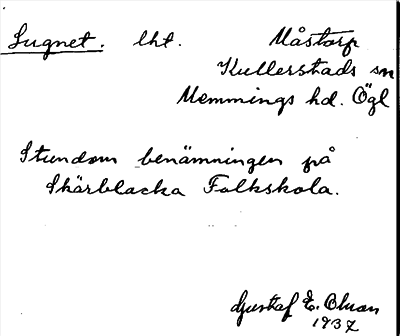 Lugnet. lht. Måstorp
Kullerstads sn
Memmings hd. Ögl
Stundom benämningen på
Skärblacka Folkskola.
Gustaf E. Olsson
1937